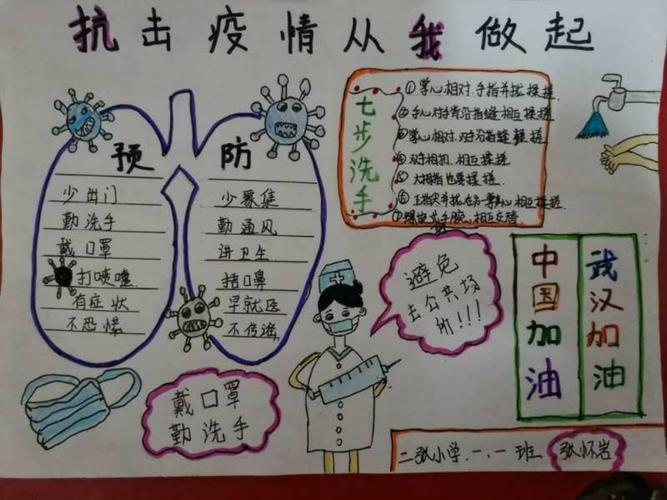 抗击疫情从我做起
预防
少出门
勤洗手
戴口罩
打喷嚏
有症状
不恐慌
少聚集
勤通风
讲卫生
捂口鼻
早就医
不传谣
七步洗手
①掌心相对.手指并拢揉搓
②手心对手背沿指缝相互揉搓
③掌心相对.双手沿指缝揉搓
④双手相扣.相互揉搓
⑤大拇指也要揉搓
避免
去公共场
所!!!
中国加油
武汉加油
戴口罩
勤洗手
二张小学.一.一班
张怀岩